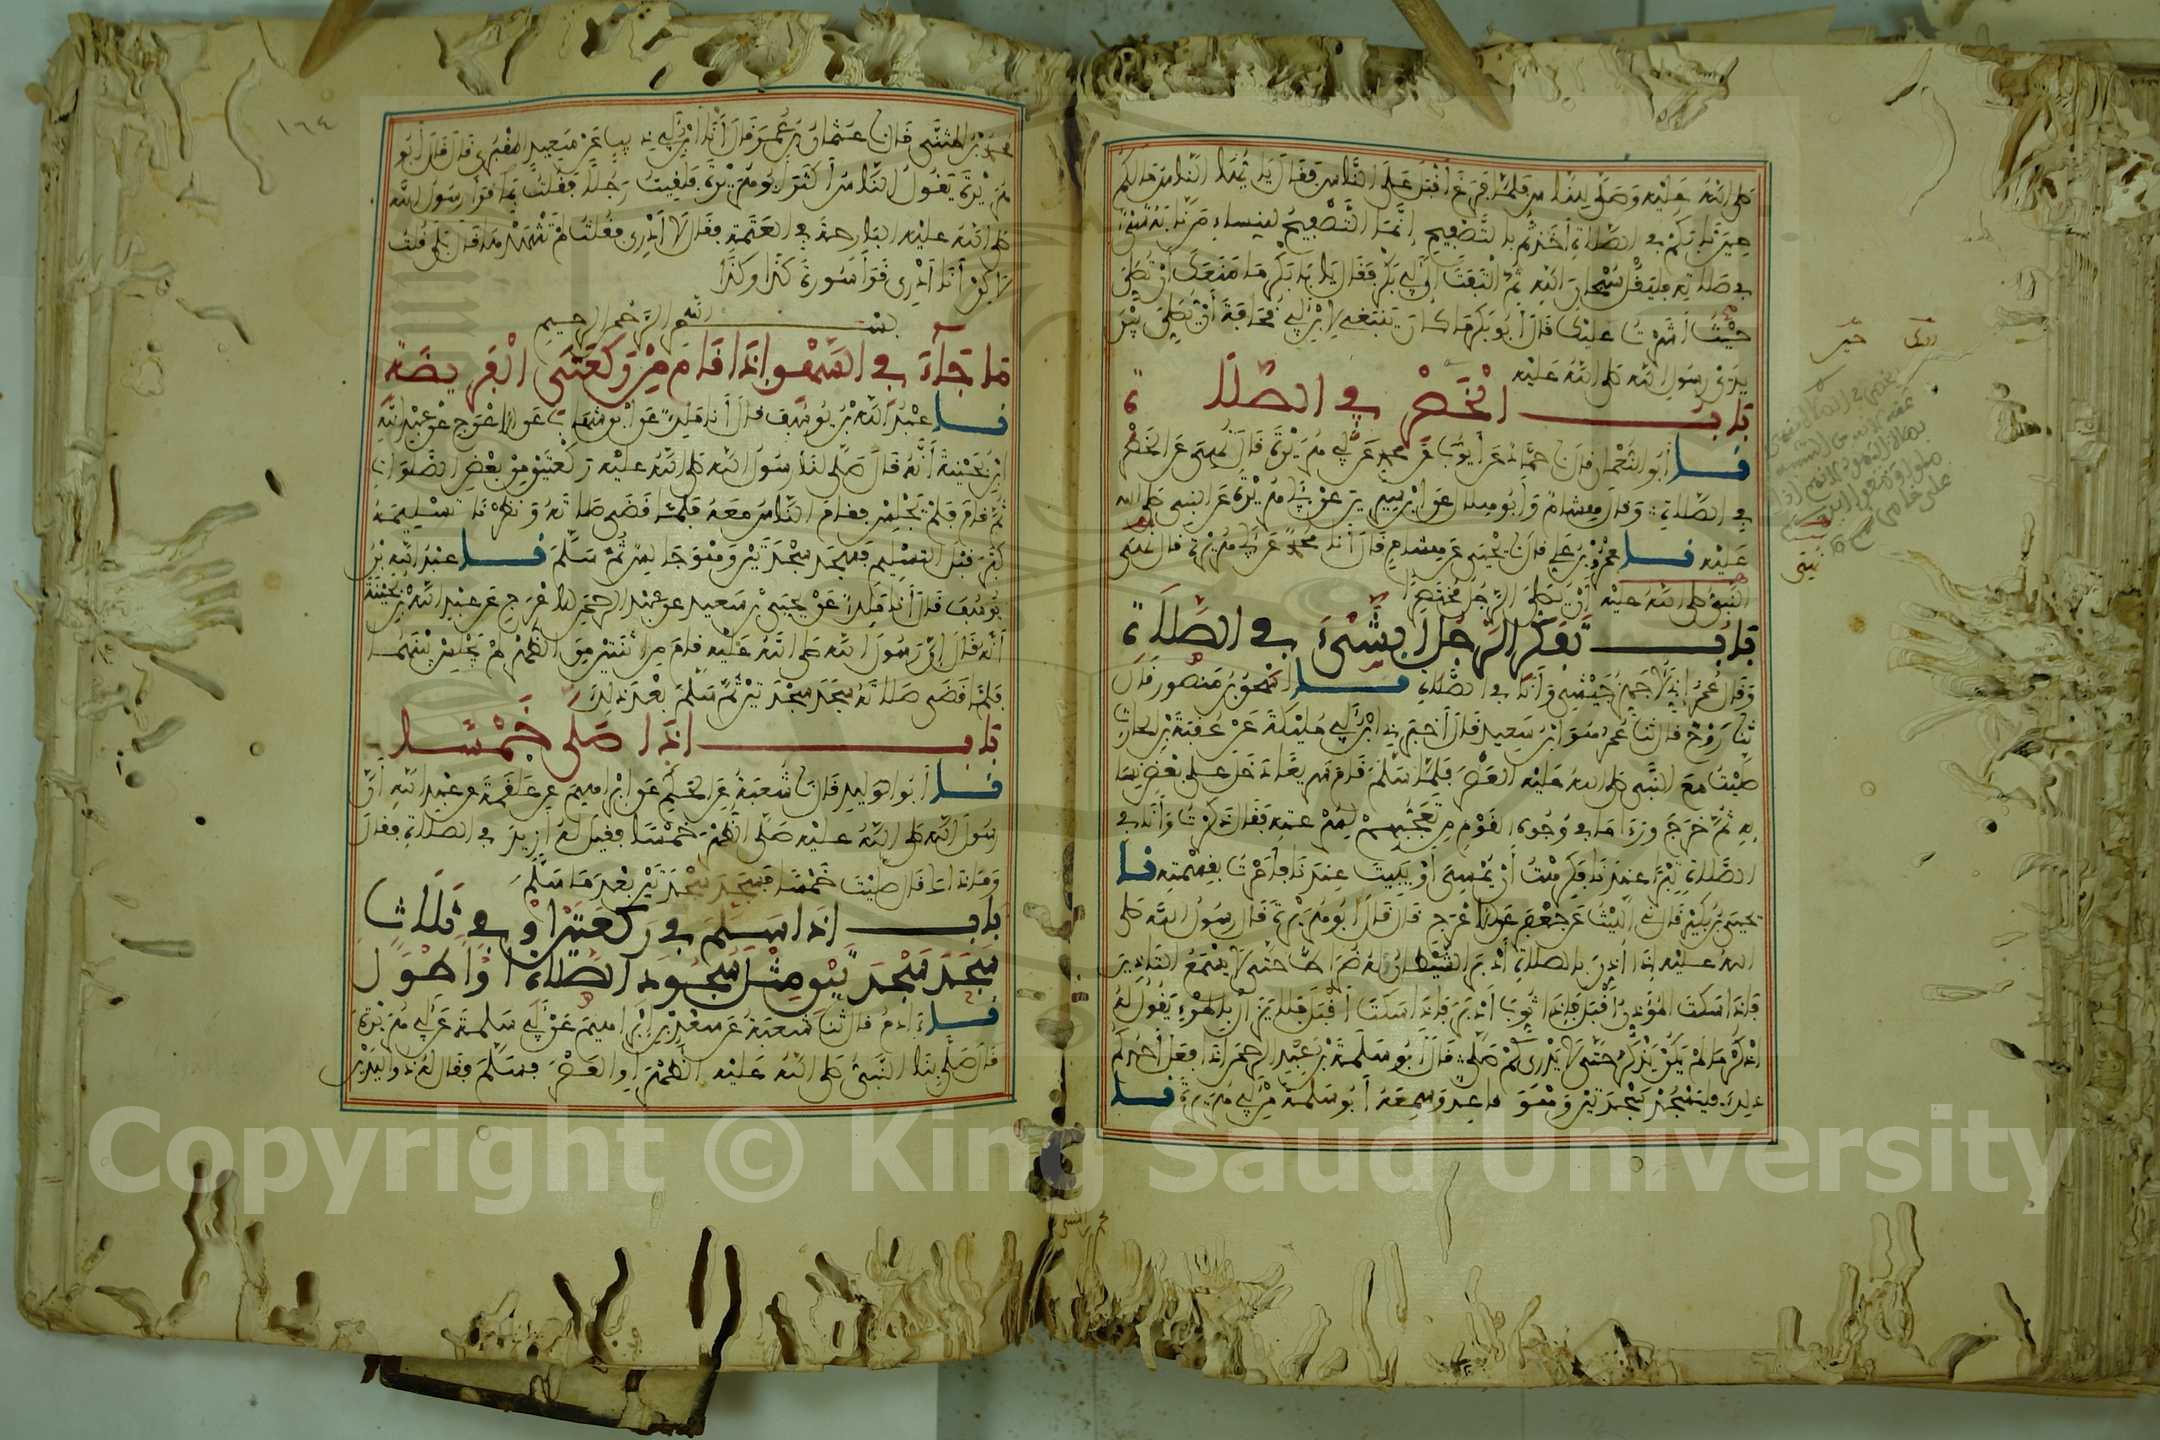 صلى الله عليه وصلى للناس فلما فرغ أقبل على الناس فقال يا أيها الناس ما لكم
حين نابكم في الصلاة أخذتم بالتصفيح إنما التصفيح للنساء من نابه شيء
في صلاته فليقل سبحان الله ثم التفت إلى أبي بكر فقال يا با بكر ما منعك أن تصلي
حيث أشرت عليك قال أبو بكر ما كان ينبغي لابن أبي قحافة أن يصلي بين
يدي رسول الله صلى الله عليه
باب الخصر في الصلاة
نا أبو النعمان قال نا حماد عن أيوب عن محمد عن أبي هريرة قال نهي عن الخصر
في الصلاة وقال هشام وأبو هلال عن ابن سيرين عن أبي هريرة عن النبي صلى الله
عليه نا عمرو بن علي قال نا يحيى عن هشام قال أنا محمد عن أبي هريرة قال نهى
النبي صلى الله عليه أن يصلي الرجل مختصرا
باب تفكر الرجل بشيء في الصلاة
وقال عمر إني لأجهز جيشي وأنا في الصلاة نا إسحق بن منصور قال
نا روح قال نا عمر هو ابن سعيد قال أخبرني ابن أبي مليكة عن عقبة بن الحارث
صليت مع النبي صلى الله عليه العصر فلما سلم قام سريعا دخل على بعض نسا
ئه ثم خرج ورءا ما في وجوه القوم من تعجبهم لسرعته فقال ذكرت وأنا في
الصلاة تبرا عندنا فكرهت أن يمسي أو يبيت عندنا فأمرت بقسمته نا
يحيى بن بكير قال نا الليث عن جعفر عن الأعرج قال قال أبو هريرة قال رسول الله صلى
الله عليه إذا أذن بالصلاة أدبر الشيطان له ضراط حتى لا يسمع التأذين
فإذا سكت المؤذن أقبل فإذا ثوب أدبر فإذا سكت أقبل فلا يزال بالمرء يقول له
اذكر ما لم يكن يذكر حتى لا يدري كم صلى قال أبو سلمة بن عبد الرحمن إذا فعل أحدكم
ذلك فليسجد سجدتين وهو قاعد وسمعه أبو سلمة من أبي هريرة نا
١٦٤
محمد بن المثنى قال نا عثمان بن عمر قال أنا ابن أبي ذيب عن سعيد المقبري قال قال أبو
هريرة يقول الناس أكثر أبو هريرة فلقيت رجلا فقلت بما قرأ رسول الله
صلى الله عليه البارحة في العتمة فقال لا أدري فقلت لم تشهدها قال بلى قلت
لاكن أنا أدري قرأ سورة كذا وكذا
بسم الله الرحمن الرحيم
ما جاء في السهو إذا قام من ركعتي الفريضة
نا عبد الله بن يوسف قال أنا ملك عن ابن شهاب عن الأعرج عن عبد الله
ابن بحينة أنه قال صلى لنا رسول الله صلى الله عليه ركعتين من بعض الصلوات
ثم قام فلم يجلس فقام الناس معه فلما قضى صلاته ونظرنا تسليمه
كبر قبل التسليم فسجد سجدتين وهو جالس ثم سلم نا عبد الله بن
يوسف قال أنا ملك عن يحيى بن سعيد عن عبد الرحمن الأعرج عن عبد الله بن بحينة
أنه قال إن رسول الله صلى الله عليه قام من اثنتين من الظهر لم يجلس بينهما
فلما قضى صلاته سجد سجدتين ثم سلم بعد ذلك
باب إذا صلى خمسا
نا أبو الوليد قال نا شعبة عن الحكم عن ابراهيم عن علقمة عن عبد الله أن
رسول الله صلى الله عليه صلى الظهر خمسا فقيل له أزيد في الصلاة فقال
وما ذاك قال صليت خمسا فسجد سجدتين بعد ما سلم
باب إذا سلم في ركعتين أو في ثلاث
سجد سجدتين مثل سجود الصلاة أو أطول
نا ءادم قال نا شعبة عن سعد بن ابراهيم عن أبي سلمة عن أبي هريرة
قال صلى بنا النبي صلى الله عليه الظهر أو العصر فسلم فقال له ذو اليدين
Copyright © King Saud University